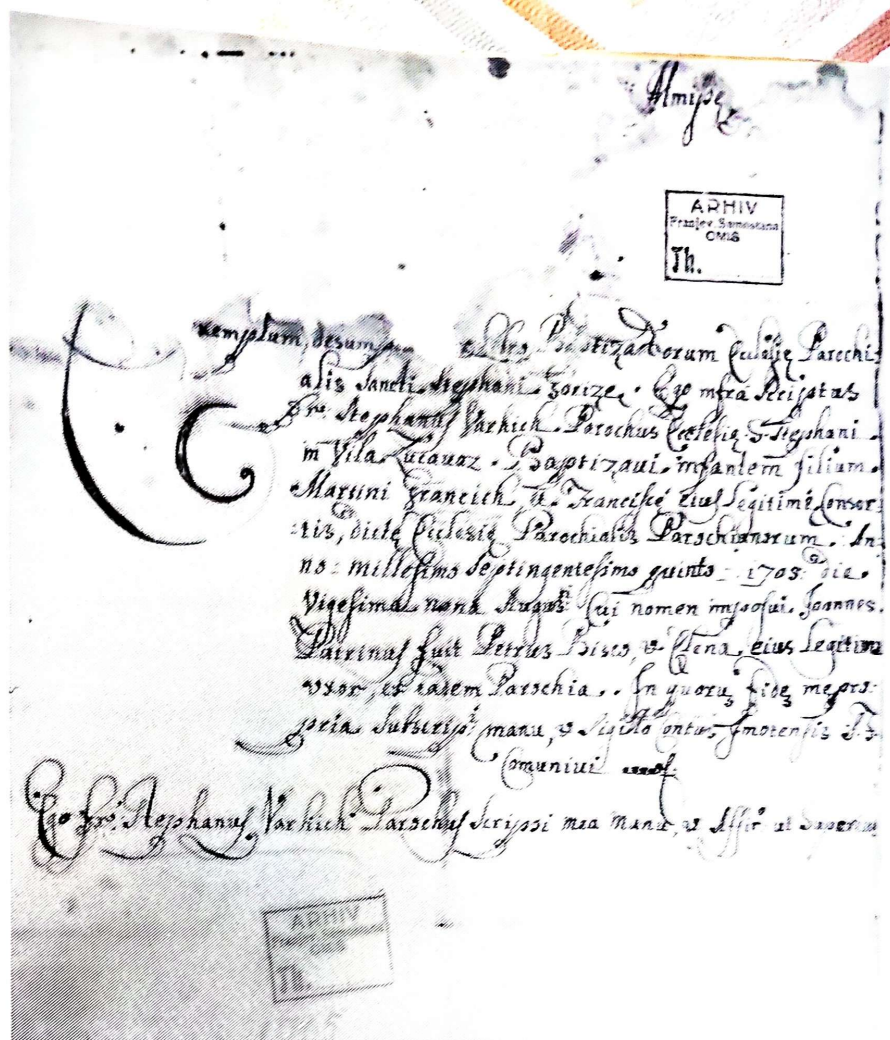 Almisę
ARHIV
Franjev. Samostana
OMIŠ
Th.
Exemplum, desum Libro Baptizatorum Ecclesię Parochi-
alis Sancti Stephani Gorize. Ego infra scriptus
Fr: Stephanus Varhich Parochus Ecclesię S. Stephani
in Vila Zucavaz. Baptizaui infantem filium
Martini Francich, et Franciscę eius legitimę Consor-
tis, dictę Ecclesię Parochialis Parochianorum. An-
no: millesimo septingentesimo quinto: 1705: die
Vigesima nona Augusti Cui nomen imposui Joannes
Patrinus fuit Petrus Bisco, et Elena eius legitima
vxor, ex eadem Parochia. In quorū fidē me pro-
pria subscripsi manu, et sigillo Imotensis
Comuniui
Ego Fr: Stephanus Varhich Parochus scripsi mea manu, et affir ut supra
ARHIV
OMIŠ
Th.